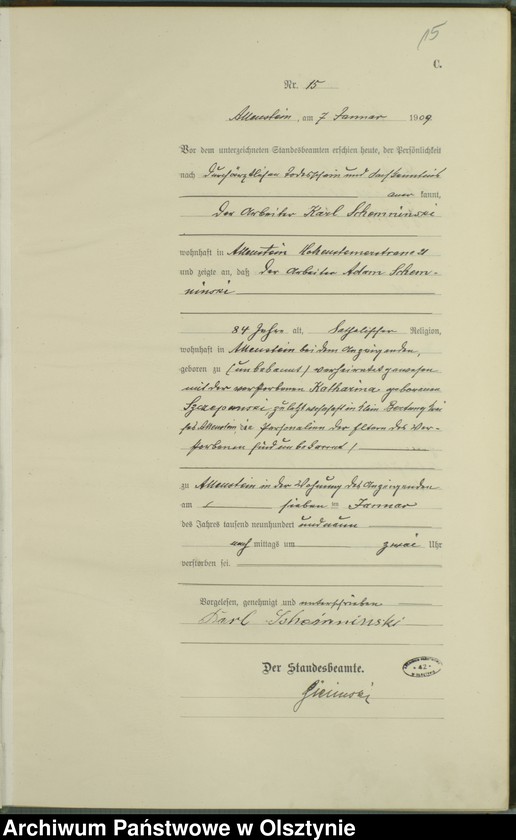 15
C.
Nr. 15
Allenstein, am 7 Januar 1909
Vor dem unterzeichneten Standesbeamten erschien heute, der Persönlichkeit
nach durch ärztlichen Todesschein und
kannt,
der Arbeiter Karl
wohnhaft in Allenstein
und zeigte an, daß der Arbeiter Adam
ninski
84 Jahre alt, katholischer Religion,
wohnhaft in Allenstein bei dem Anzeigenden,
geboren zu (unbekannt) verheiratet gewesen
mit der verstorbenen Katharina geborenen
zuletzt wohnhaft in Klein Bertung
Allenstein die Personalien der Eltern des Ver-
storbenen sind unbekannt)
zu Allenstein in der Wohnung des Anzeigenden
am sieben ten Januar
des Jahres tausend neunhundert und neun
nach mittags um zwei Uhr
verstorben sei.
Vorgelesen, genehmigt und unterschrieben
Karl
Der Standesbeamte.
Archiwum Państwowe w Olsztynie